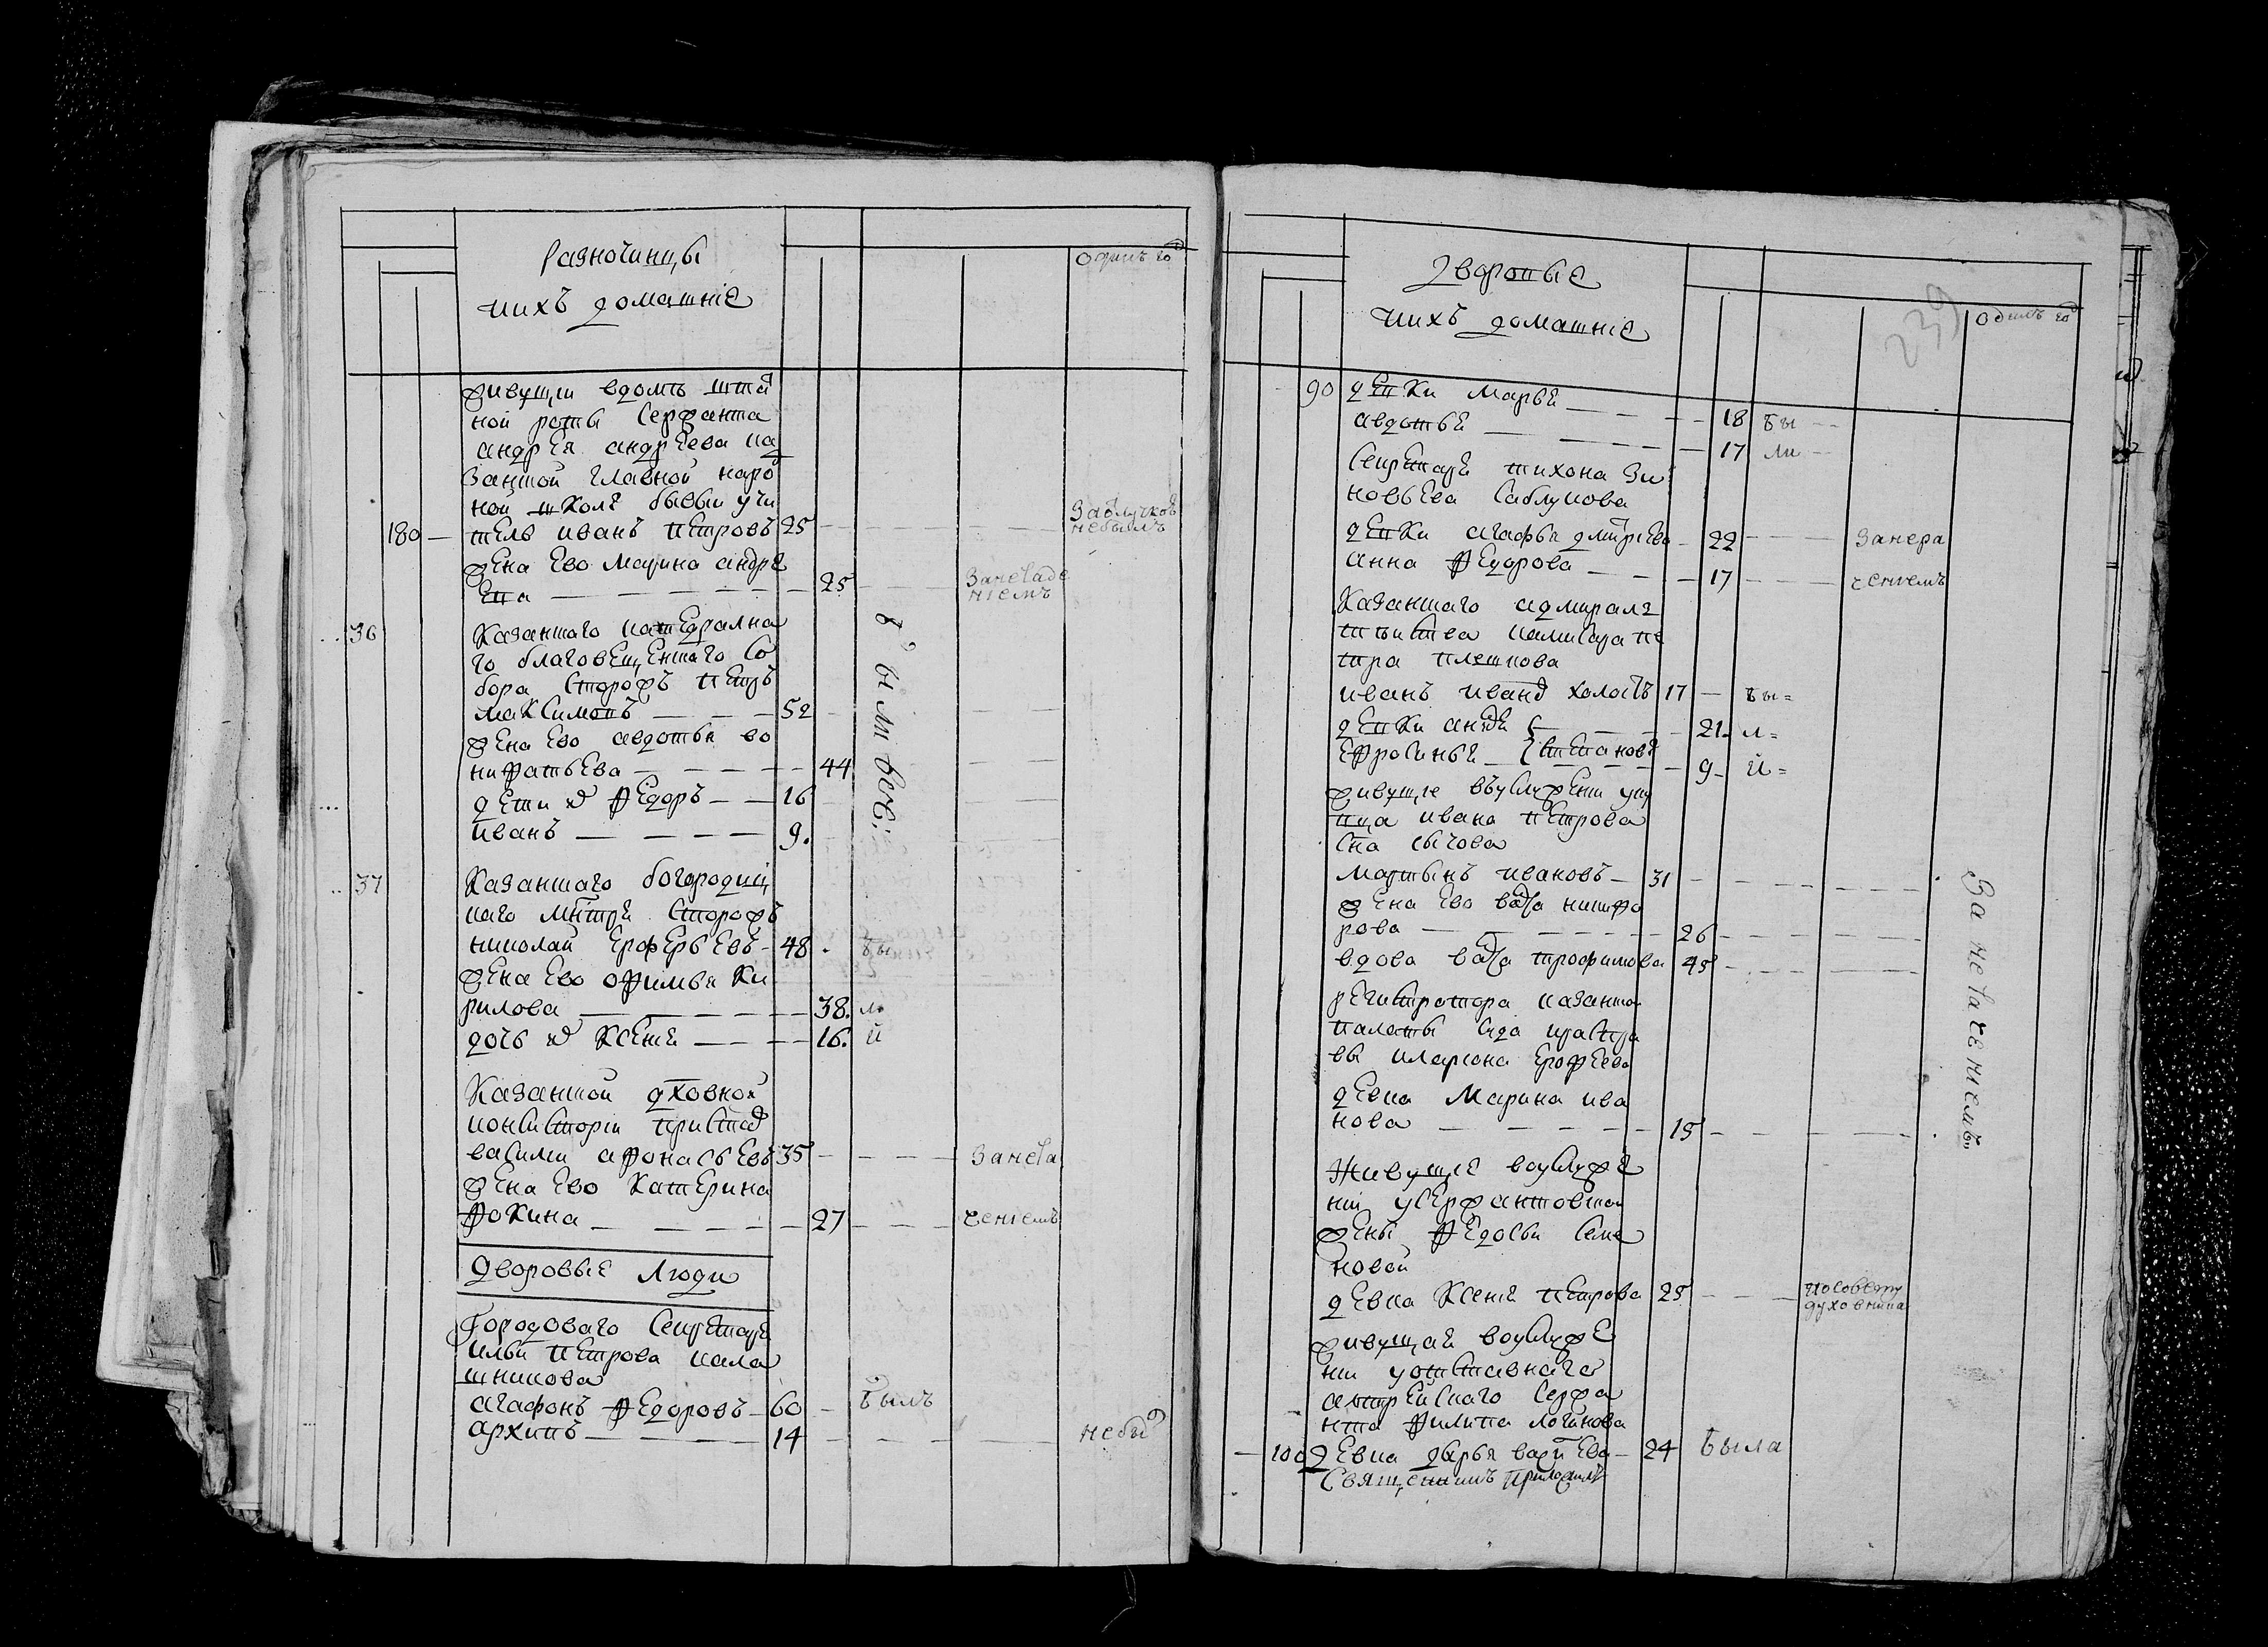 Разночинцы
ихъ домашніе
одинъ год
живущи вдомѣ штат
ной роты сержанта
андрѣя андрѣева ка
занской главной народ
ной школѣ бывыи учи
180 — тель иванъ петровъ 25 — — — — заотлучкой небылъ
жена ево марина андре
ева — — — — 25 — — занераде
ніемъ
36 казанскаго катедрална
го благовещенскаго со
бора сторожъ петръ
максимовъ — — — 52
жена ево авдотья во
нифатьева — — — — 44
дети их федоръ — — 16
иванъ — — — — 9.
были всѣ
37 казанскаго богородиц
каго мнтря сторожъ
николай ерофеевъ — 48 . бы
жена ево офимья ки
рилова — — — — 38. ли
дочь их ксенія — — — 16. и
казанской дховной
консисторіи пристав
василии афонасьевъ 35 — — — занеіс
жена ево катерина
фокина — — — — 27 — — — ченіемъ
дворовые люди
городоваго секретаря
ильи петрова кала
шникова
агафонъ федоровъ — 60 — былъ
архипъ — — — 14 — — — — небы
дворовые
ихъ домашніе
239
одинъ год
90 девки марья — — — 18 бы — —
авдотья — — — — 17 ли —
секретаря тихона зи
новьева саблукова
девки агафья дмитриева — 22 — — — занера
анна федорова — — — 17 — — — ченіемъ
казанскаго адмирал
тейства комисара пе
тра плешкова
иванъ иванов холостъ 17 — бы =
девки — — — 21. л =
ефросинья степанова — 9 — и =
живущіе въуслужени у ку
пца ивана петрова
сна сычова
мартынъ ивановъ — 31 — — — — —
жена ево васса никифо
рова — — — — — 26 — — — — —
вдова васса трофимова 45 — — — —
регистратора казанской
палаты суда и расправы
вы илариона ерофеева
девка марина ива
нова — — — — — 15 — — — — —
занеісченіемъ
живущіе воуслуже
ніи усержантовской
жены федосьи семе
новой
девка ксенія петрова 25 — — — посовету
духовника
живущая воуслуже
ніи уотставнаго
сержа
нта филипа логинова
100 девка дарья — 24 была
священникъ